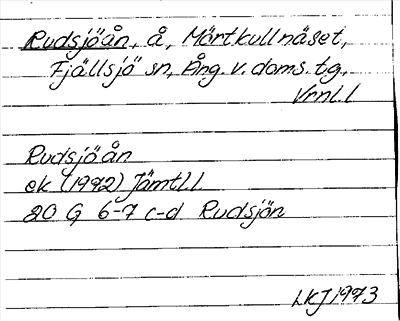 Rudsjöån, å, Mörtkullnäset,
Fjällsjö sn, Ång. v. doms. tg.,
Vrnl. l
Rudsjöån
ek (1972) Jämtl l
20 G 6-7 c-d Rudsjön
LKJ 1973